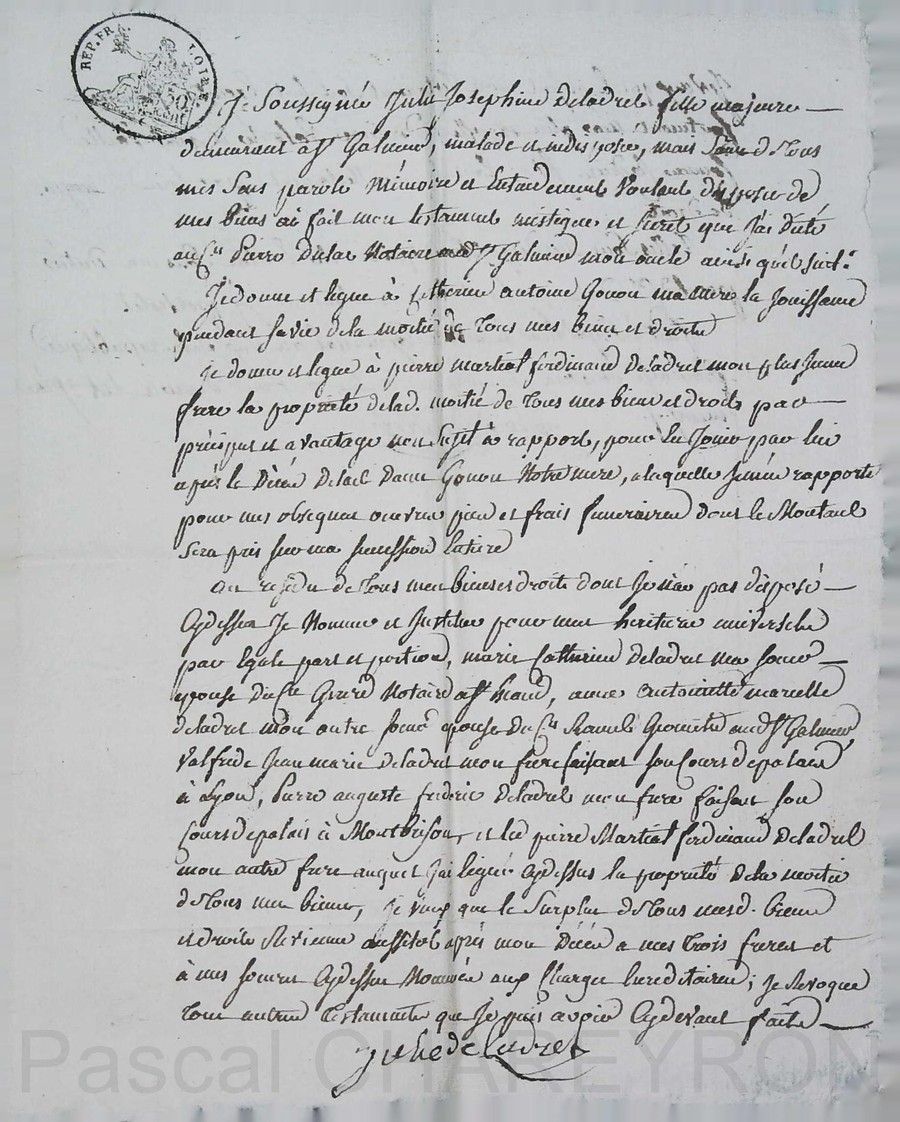 REP. FR. LOIRE.
50
Je Soussigné Julie Josephine Deladret fille majeure
demeurant a St Galmier, malade et indisposée, mais Saine de Tous
mes Sens parole Mémoire et Entendement Voulant disposer de
mes biens ai fait mon testament mistique et Secret que J'ai dicté
au Cen Pierre Dulac Notaire aud St Galmier mon oncle ainsi qu'il suit.
Je donne et legue à Catherine antoine Gonon ma mere la Jouissance
pendant sa vie de la moitié de Tous mes biens et droits
Je donne et legue à pierre martial ferdinand Deladret mon plus Jeune
frere la proprieté de lad. moitié de Tous mes biens et droits par
préciput et avantage non Sujet à rapport, pour en Jouir par lui
après le Décès de lad. Dame Gonon Notre mere, a laquelle J'en rapporte
pour mes obseques œuvres pies et frais funeraires dont le Montant
Sera pris sur ma succession Entiere
au residu de Tous mes biens et droits dont Je n'ai pas disposé
Cydessus Je Nomme et Institue pour mes heritiers universels
par Egale part et portion, marie Catherine Deladret ma soeur
epouse du Cen Girard Notaire a St heand, anne antoinette marcelle
deladret mon autre soeur epouse du Cen Ramel aud St Galmier,
Valfrede Jean marie deladret mon frere faisant son Cours de palais
à Lyon, Pierre auguste frederic Deladret mon frere faisant son
Cours de palais à Montbrison, et led pierre Martial ferdinand Deladret
mon autre frere auquel J'ai legué Cydessus la proprieté de la moitié
de Tous mes biens, Je veux que le Surplus de Tous mesd. biens
et droits revienne aussitôt après mon Décès a mes trois freres et
à mes soeurs Cydessus Nommés aux Charges hereditaires; Je revoque
Tous autres Testaments que Je puis avoir Cydevant faits
Julie de Ladret
Pascal CHAREYRON